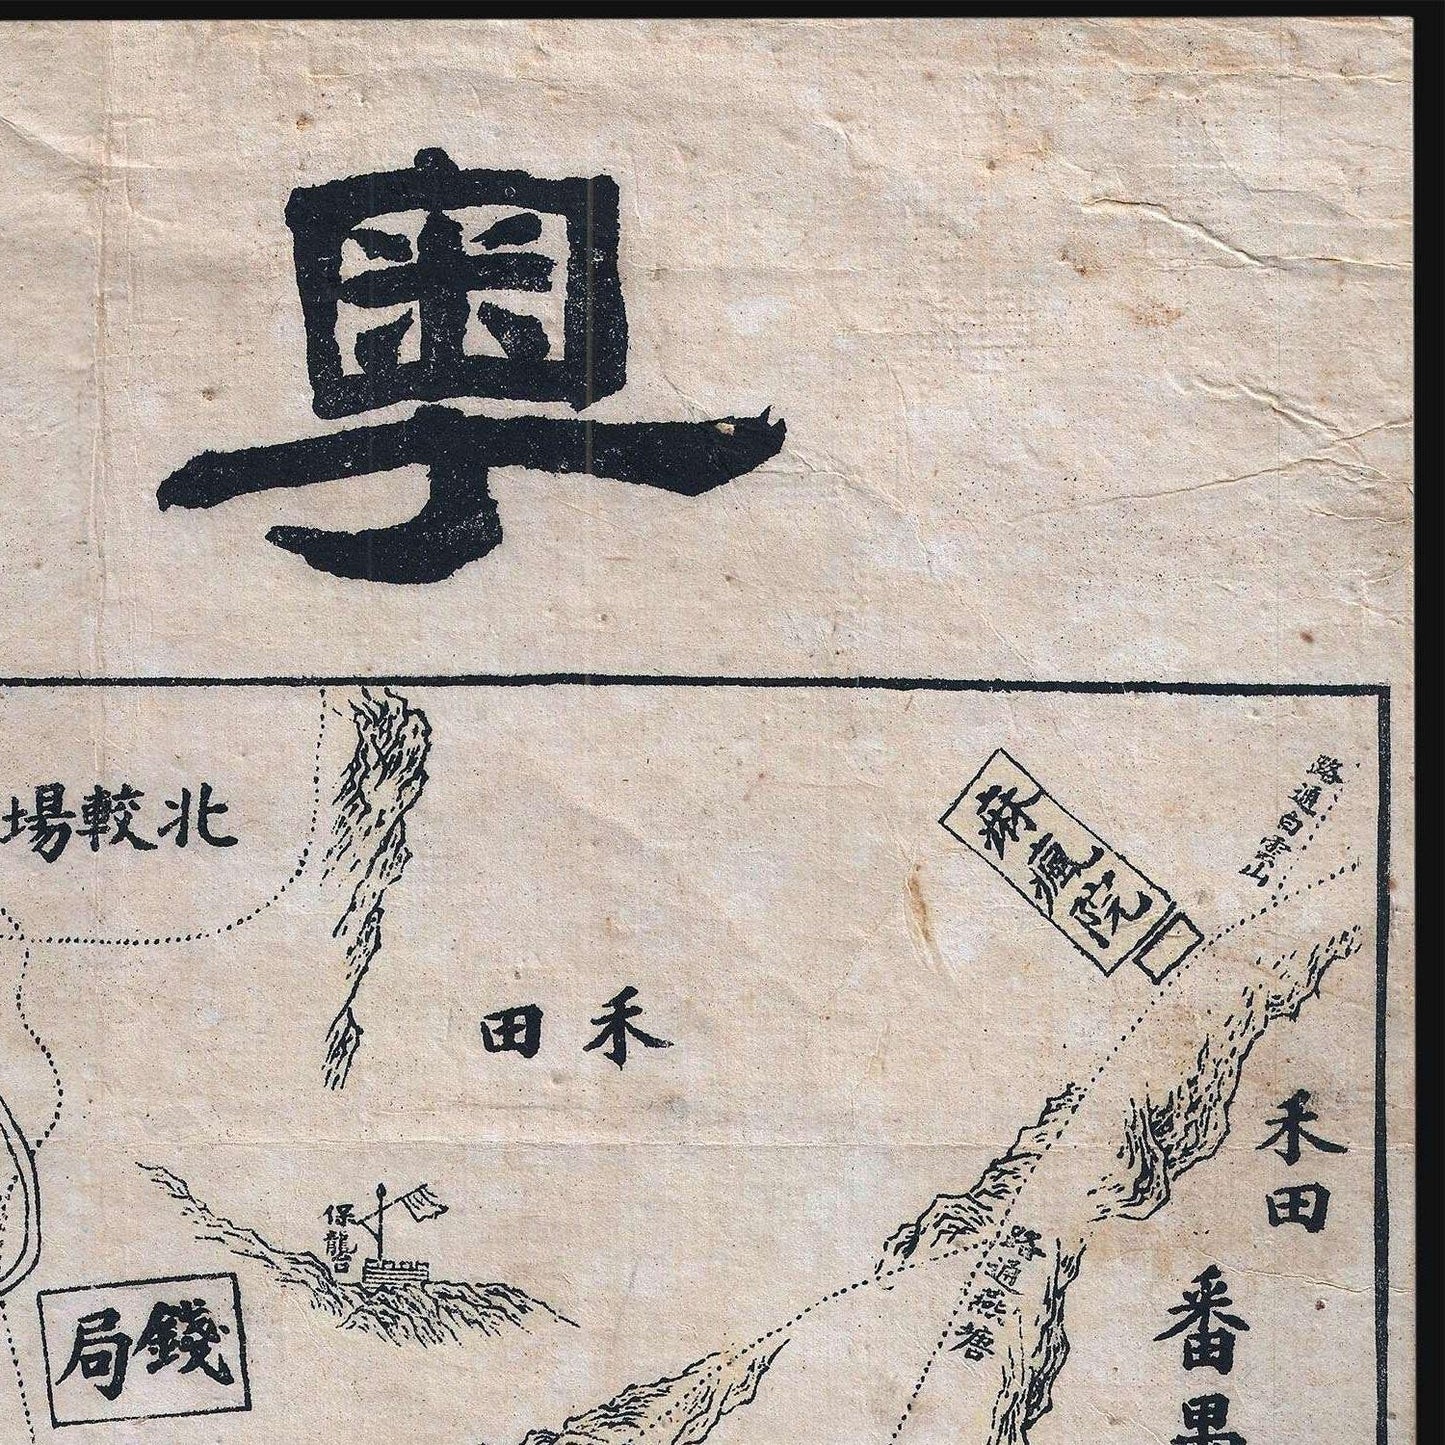 粤
路通白雲山
麻瘋院
北較場
禾田
禾田
保龍台
路通燕塘
錢局
番禺